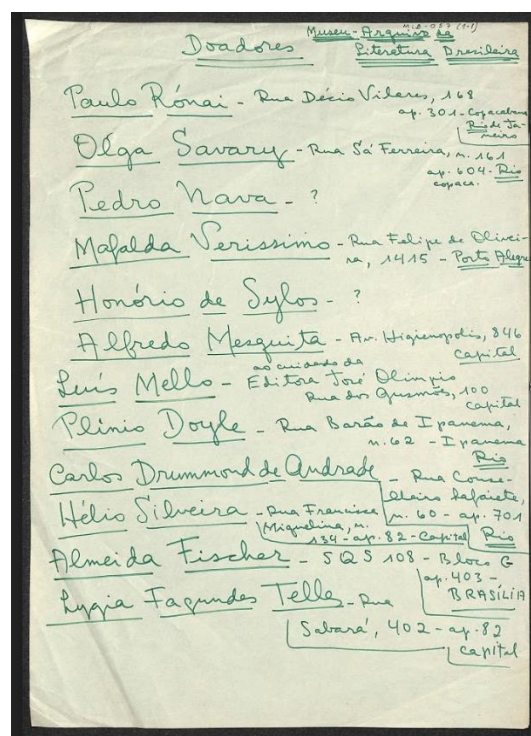 MLB-057 (1-1)
Doadores Museu-Arquivo da
Literatura Brasileira
Paulo Rónai - Rua Décio Vilares, 168
ap. 301 - Copacabana
Rio de Ja-
neiro
Olga Savary - Rua Sá Ferreira, n. 161
ap. 604 - Rio
copac.
Pedro Nava - ?
Mafalda Verissimo - Rua Felipe de Olivei-
ra, 1415 - Porto Alegre
Honório de Sylos - ?
Alfredo Mesquita - Av. Higienopolis, 846
capital
Luís Mello - ao cuidado da
Editora José Olimpio
Rua dos Gusmões, 100
capital
Plínio Doyle - Rua Barão de Ipanema,
n. 62 - Ipanema
Rio
Carlos Drummond de Andrade - Rua Conse-
lheiro Lafaiete,
n. 60 - ap. 701
Rio
Hélio Silveira - Rua Francisca
Miquelina, n.
134 - ap. 82 - Capital
Almeida Fischer - SQS 108 - Bloco G
ap. 403 -
BRASÍLIA
Lygia Fagundes Telles - Rua
Sabará, 402 - ap. 82
capital